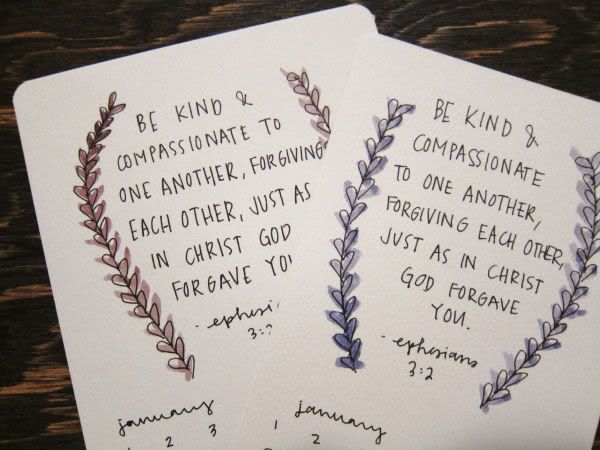 BE KIND &
COMPASSIONATE TO
ONE ANOTHER, FORGIVING
EACH OTHER, JUST AS
IN CHRIST GOD
FORGAVE
3:
january
2 3
BE KIND &
COMPASSIONATE
TO ONE ANOTHER,
FORGIVING EACH OTHER,
JUST AS IN CHRIST
GOD FORGAVE
YOU.
- ephesians
3:2
january
1 2